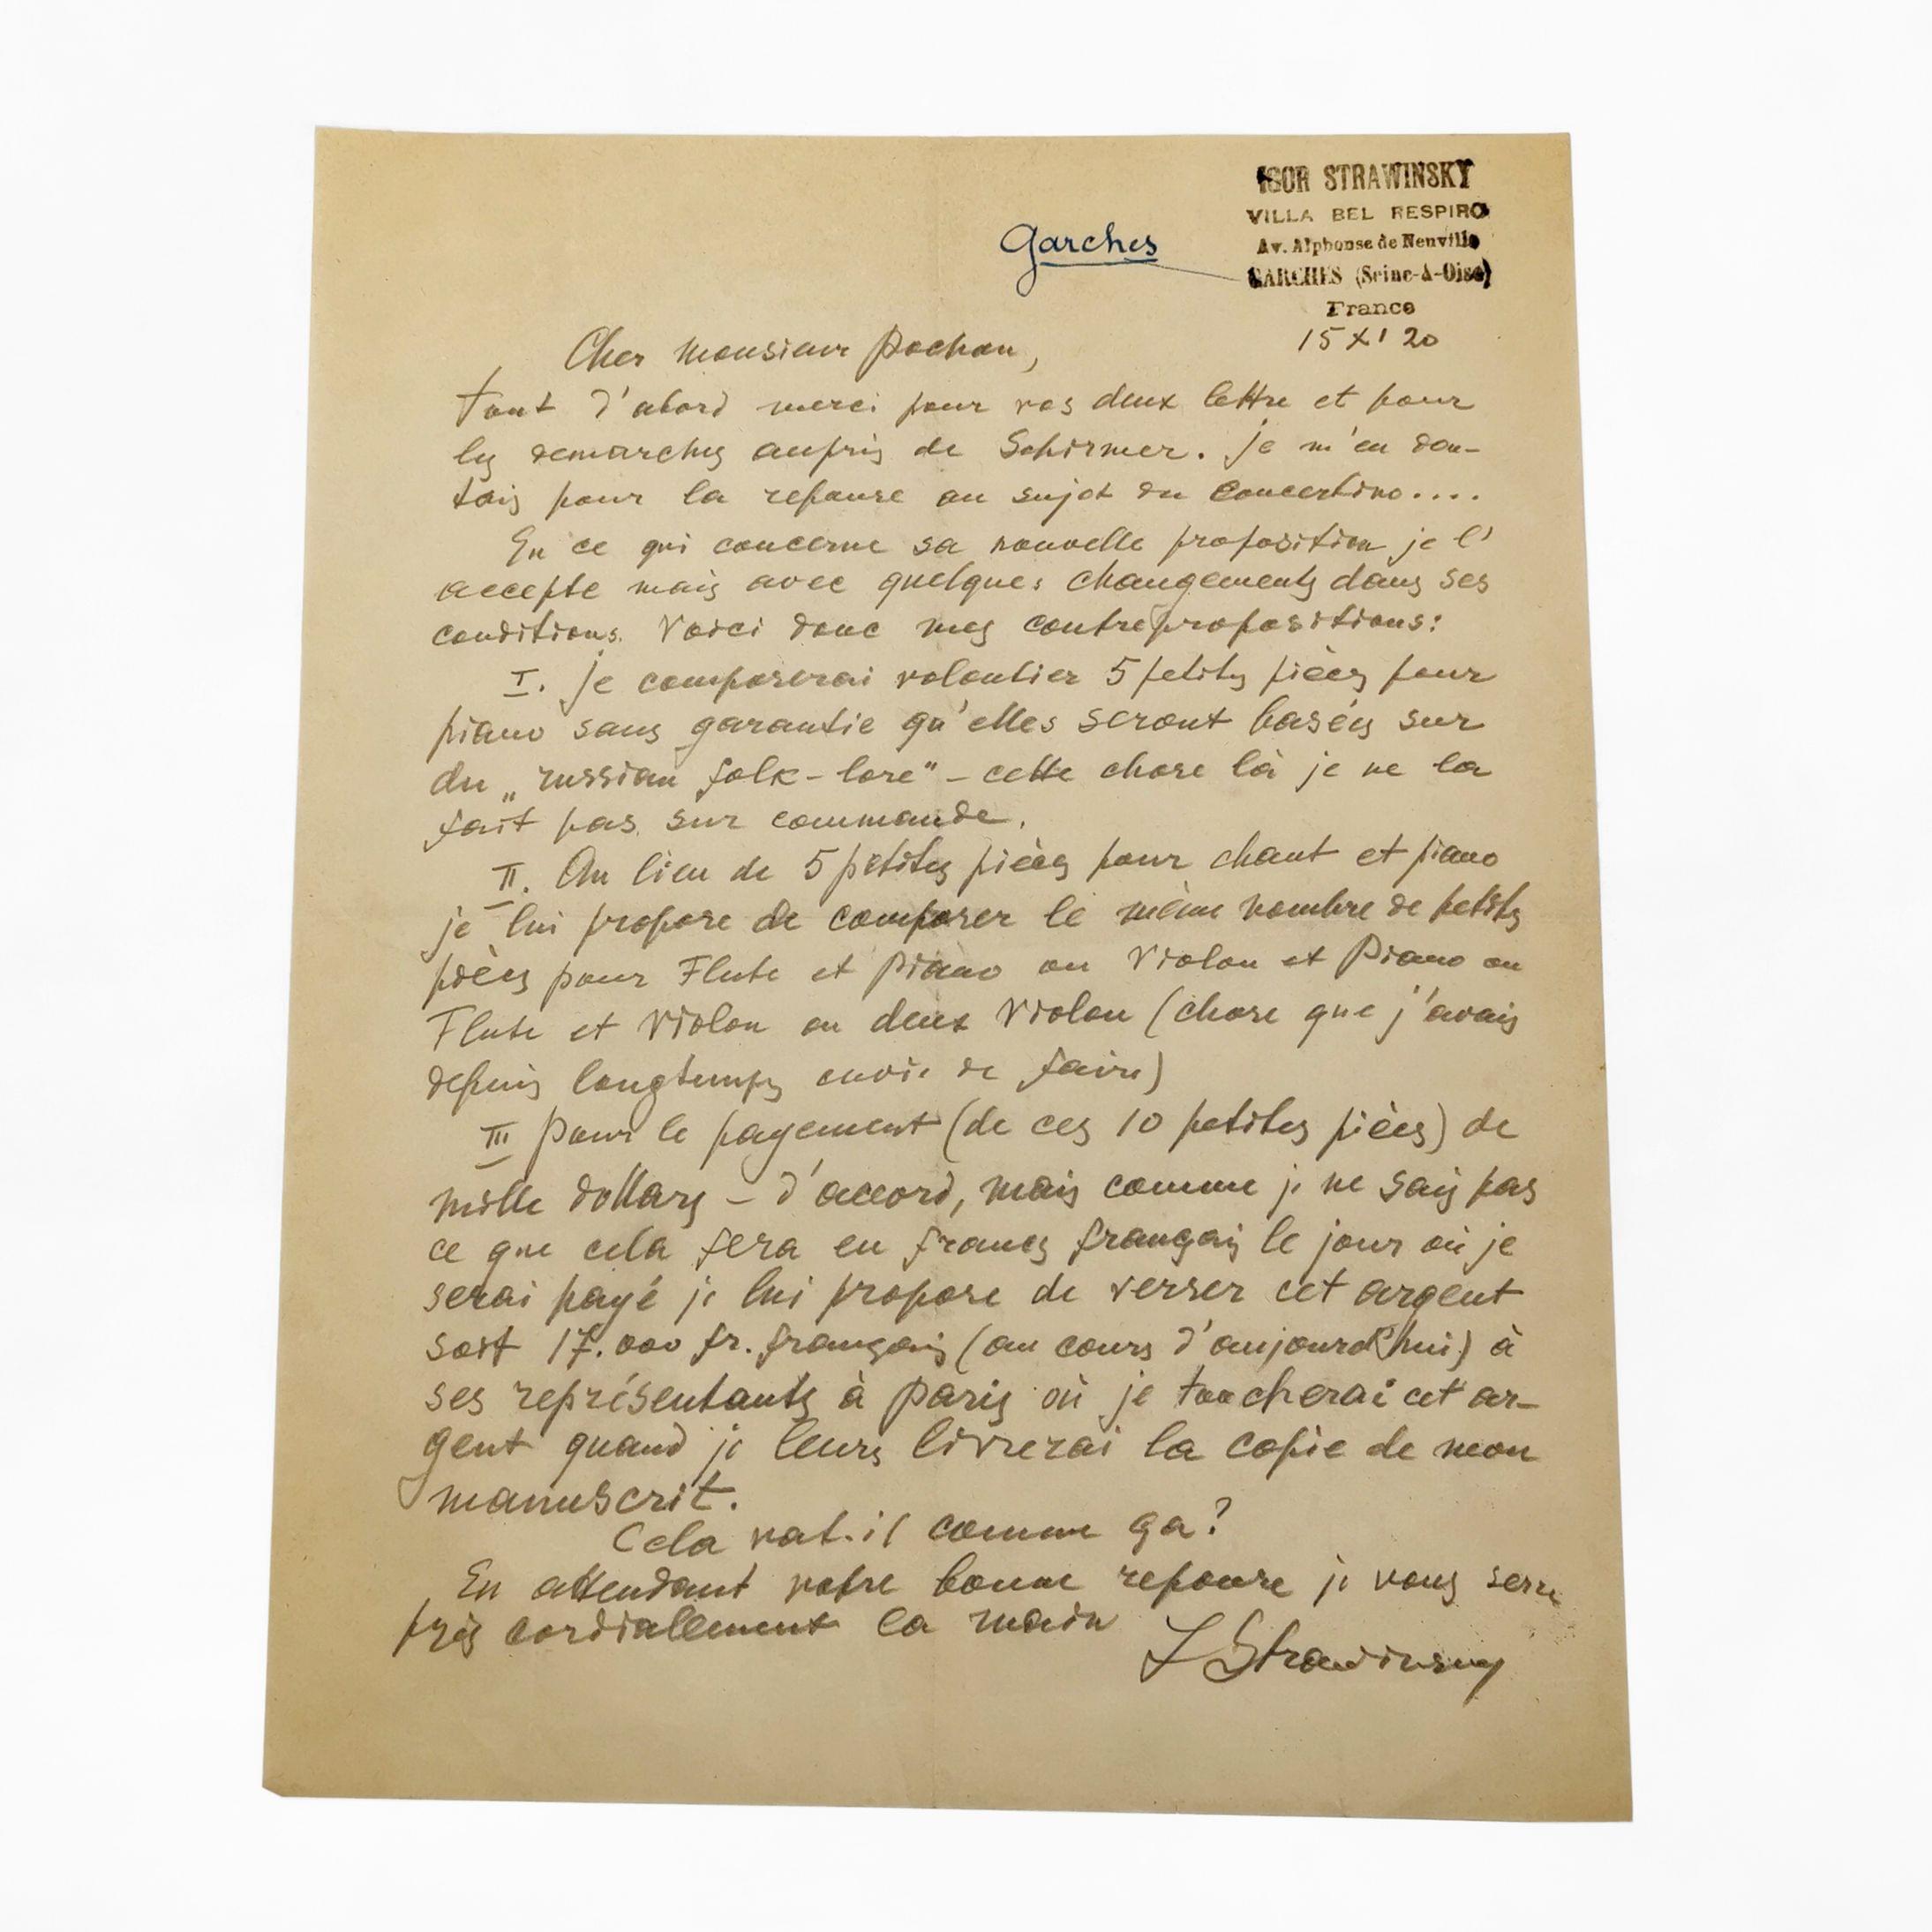 IGOR STRAWINSKY
VILLA BEL RESPIRO
Av. Alphonse de Neuville
GARCHES (Seine-&-Oise)
France
Garches
15 XI 20
Cher Monsieur Pochon,
tout d'abord merci pour vos deux lettre et pour
les demarches auprès de Schirmer. Je m'en dou-
tais pour la reponse au sujet du Concertino....
En ce qui concerne sa nouvelle proposition je l'
accepte mais avec quelques changements dans ses
conditions. Voici donc mes contrepropositions:
I. Je composerai volontier 5 petites pièces pour
piano sans garantie qu'elles seront basées sur
du „russian folk-lore" – cette chose là je ne la
fait pas sur commande.
II. Au lieu de 5 petites pièces pour chant et piano
je lui propose de composer le même nombre de petites
pièces pour Flute et Piano ou Violon et Piano ou
Flute et Violon ou deux Violon (chose que j'avais
depuis longtemps envie de faire)
III Pour le payement (de ces 10 petites pièces) de
mille dollars – d'accord, mais comme je ne sais pas
ce que cela fera en francs français le jour où je
serai payé je lui propose de verser cet argent
soit 17.000 fr. français (au cours d'aujourd'hui) à
ses représentants à Paris où je toucherai cet ar-
gent quand je leurs livrerai la copie de mon
manuscrit.
Cela vat-il comme ça?
En attendant votre bonne reponse je vous serre
très cordiallement la main
I Strawinsky